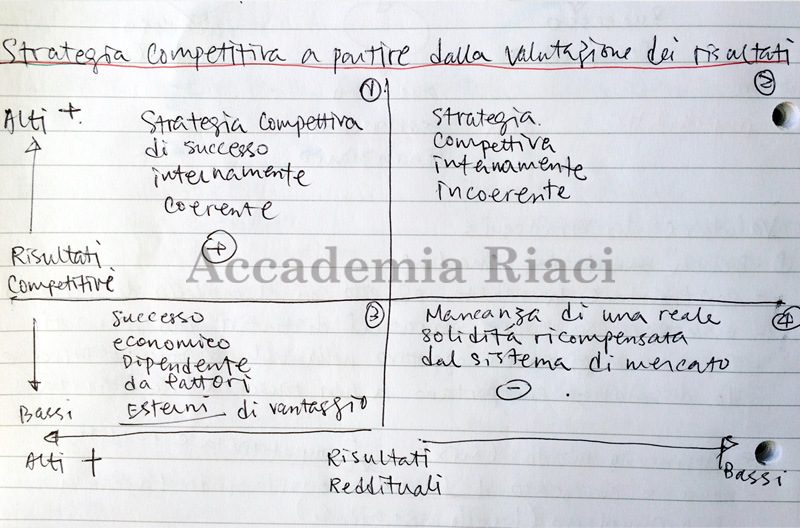 Strategia competitiva a partire dalla valutazione dei risultati
1
2
Alti +
Strategia Compettiva
di successo
internamente
coerente
+
Strategia
Compettiva
internamente
incoerente
Risultati
Competitivi
Accademia Riaci
3
successo
economico
Dipendente
da fattori
Esterni di vantaggio
4
Mancanza di una reale
soliditá ricompensata
dal sistema di mercato
-
Bassi
Alti +
Risultati
Reddituali
Bassi